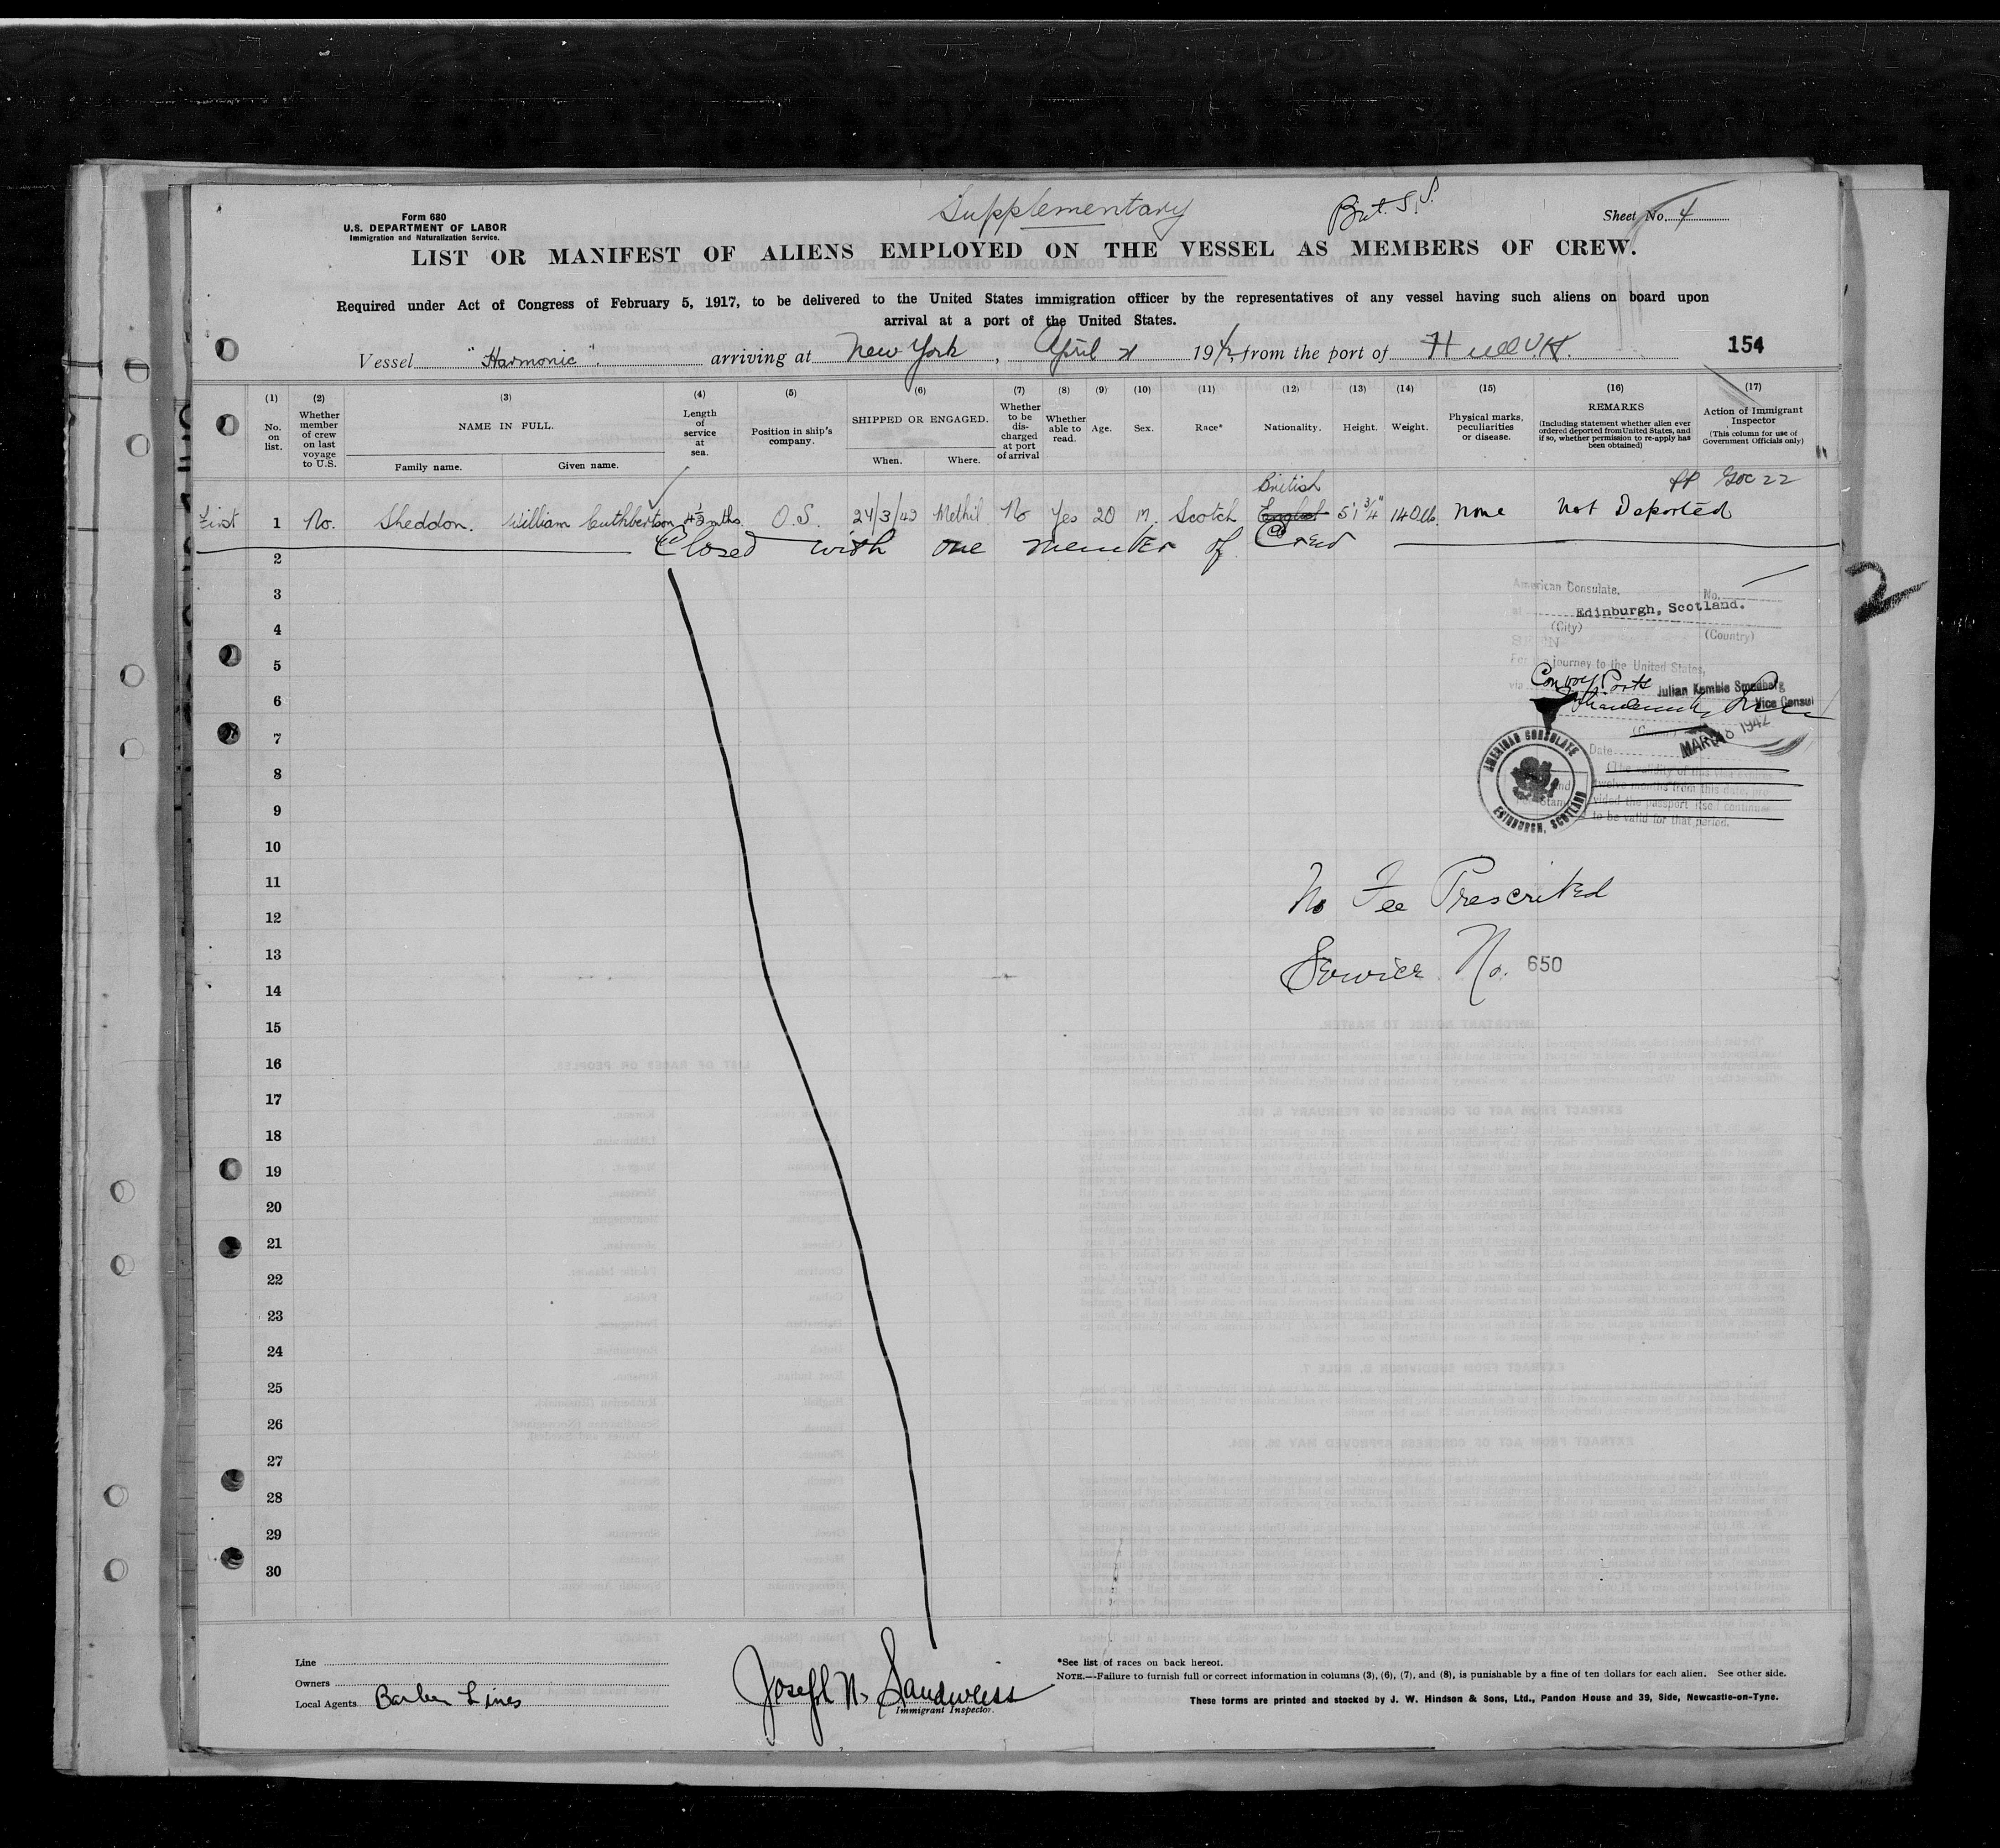 Supplementary
Brit. S.S.
Form 680
U.S. DEPARTMENT OF LABOR
Immigration and Naturalization Service.
Sheet No. 4
LIST OR MANIFEST OF ALIENS EMPLOYED ON THE VESSEL AS MEMBERS OF CREW.
Required under Act of Congress of February 5, 1917, to be delivered to the United States immigration officer by the representatives of any vessel having such aliens on board upon
arrival at a port of the United States.
Vessel "Harmonic". arriving at New York, April 21 1942 from the port of Hull U.K. 154
(1) No. on list.
(2) Whether member of crew on last voyage to U.S.
(3) NAME IN FULL. Family name. Given name.
(4) Length of service at sea.
(5) Position in ship's company.
(6) SHIPPED OR ENGAGED. When. Where.
(7) Whether to be discharged at port of arrival
(8) Whether able to read.
(9) Age.
(10) Sex.
(11) Race*
(12) Nationality.
(13) Height.
(14) Weight.
(15) Physical marks, peculiarities or disease.
(16) REMARKS (Including statement whether alien ever ordered deported from United States, and if so, whether permission to re-apply has been obtained)
(17) Action of Immigrant Inspector (This column for use of Government Officials only)
British
First 1 No. Sheddon. William Cuthbertson 4½ mths. O.S. 24/3/42 Methil No Yes 20 M. Scotch English 5'1¾" 140 lb. None Not Deported
2 Closed with one member of Crew
3
4
5
6
7
8
9
10
11
12
13
14
15
16
17
18
19
20
21
22
23
24
25
26
27
28
29
30
2
American Consulate, No.
at Edinburgh, Scotland.
(City) (Country)
SEEN
For the journey to the United States,
via Convoy Ports
Julian Kemble Smedberg
Vice Consul
Date MAR 18 1942
(The validity of this visa expires
twelve months from this date, pro-
vided the passport itself continues
to be valid for that period.
AMERICAN CONSULATE
EDINBURGH, SCOTLAND
No Fee Prescribed
Service No. 650
Line
Owners
Local Agents Barber Lines
Joseph N. Sandweiss
Immigrant Inspector.
*See list of races on back hereof.
NOTE.—Failure to furnish full or correct information in columns (3), (6), (7), and (8), is punishable by a fine of ten dollars for each alien. See other side.
These forms are printed and stocked by J. W. Hindson & Sons, Ltd., Pandon House and 39, Side, Newcastle-on-Tyne.